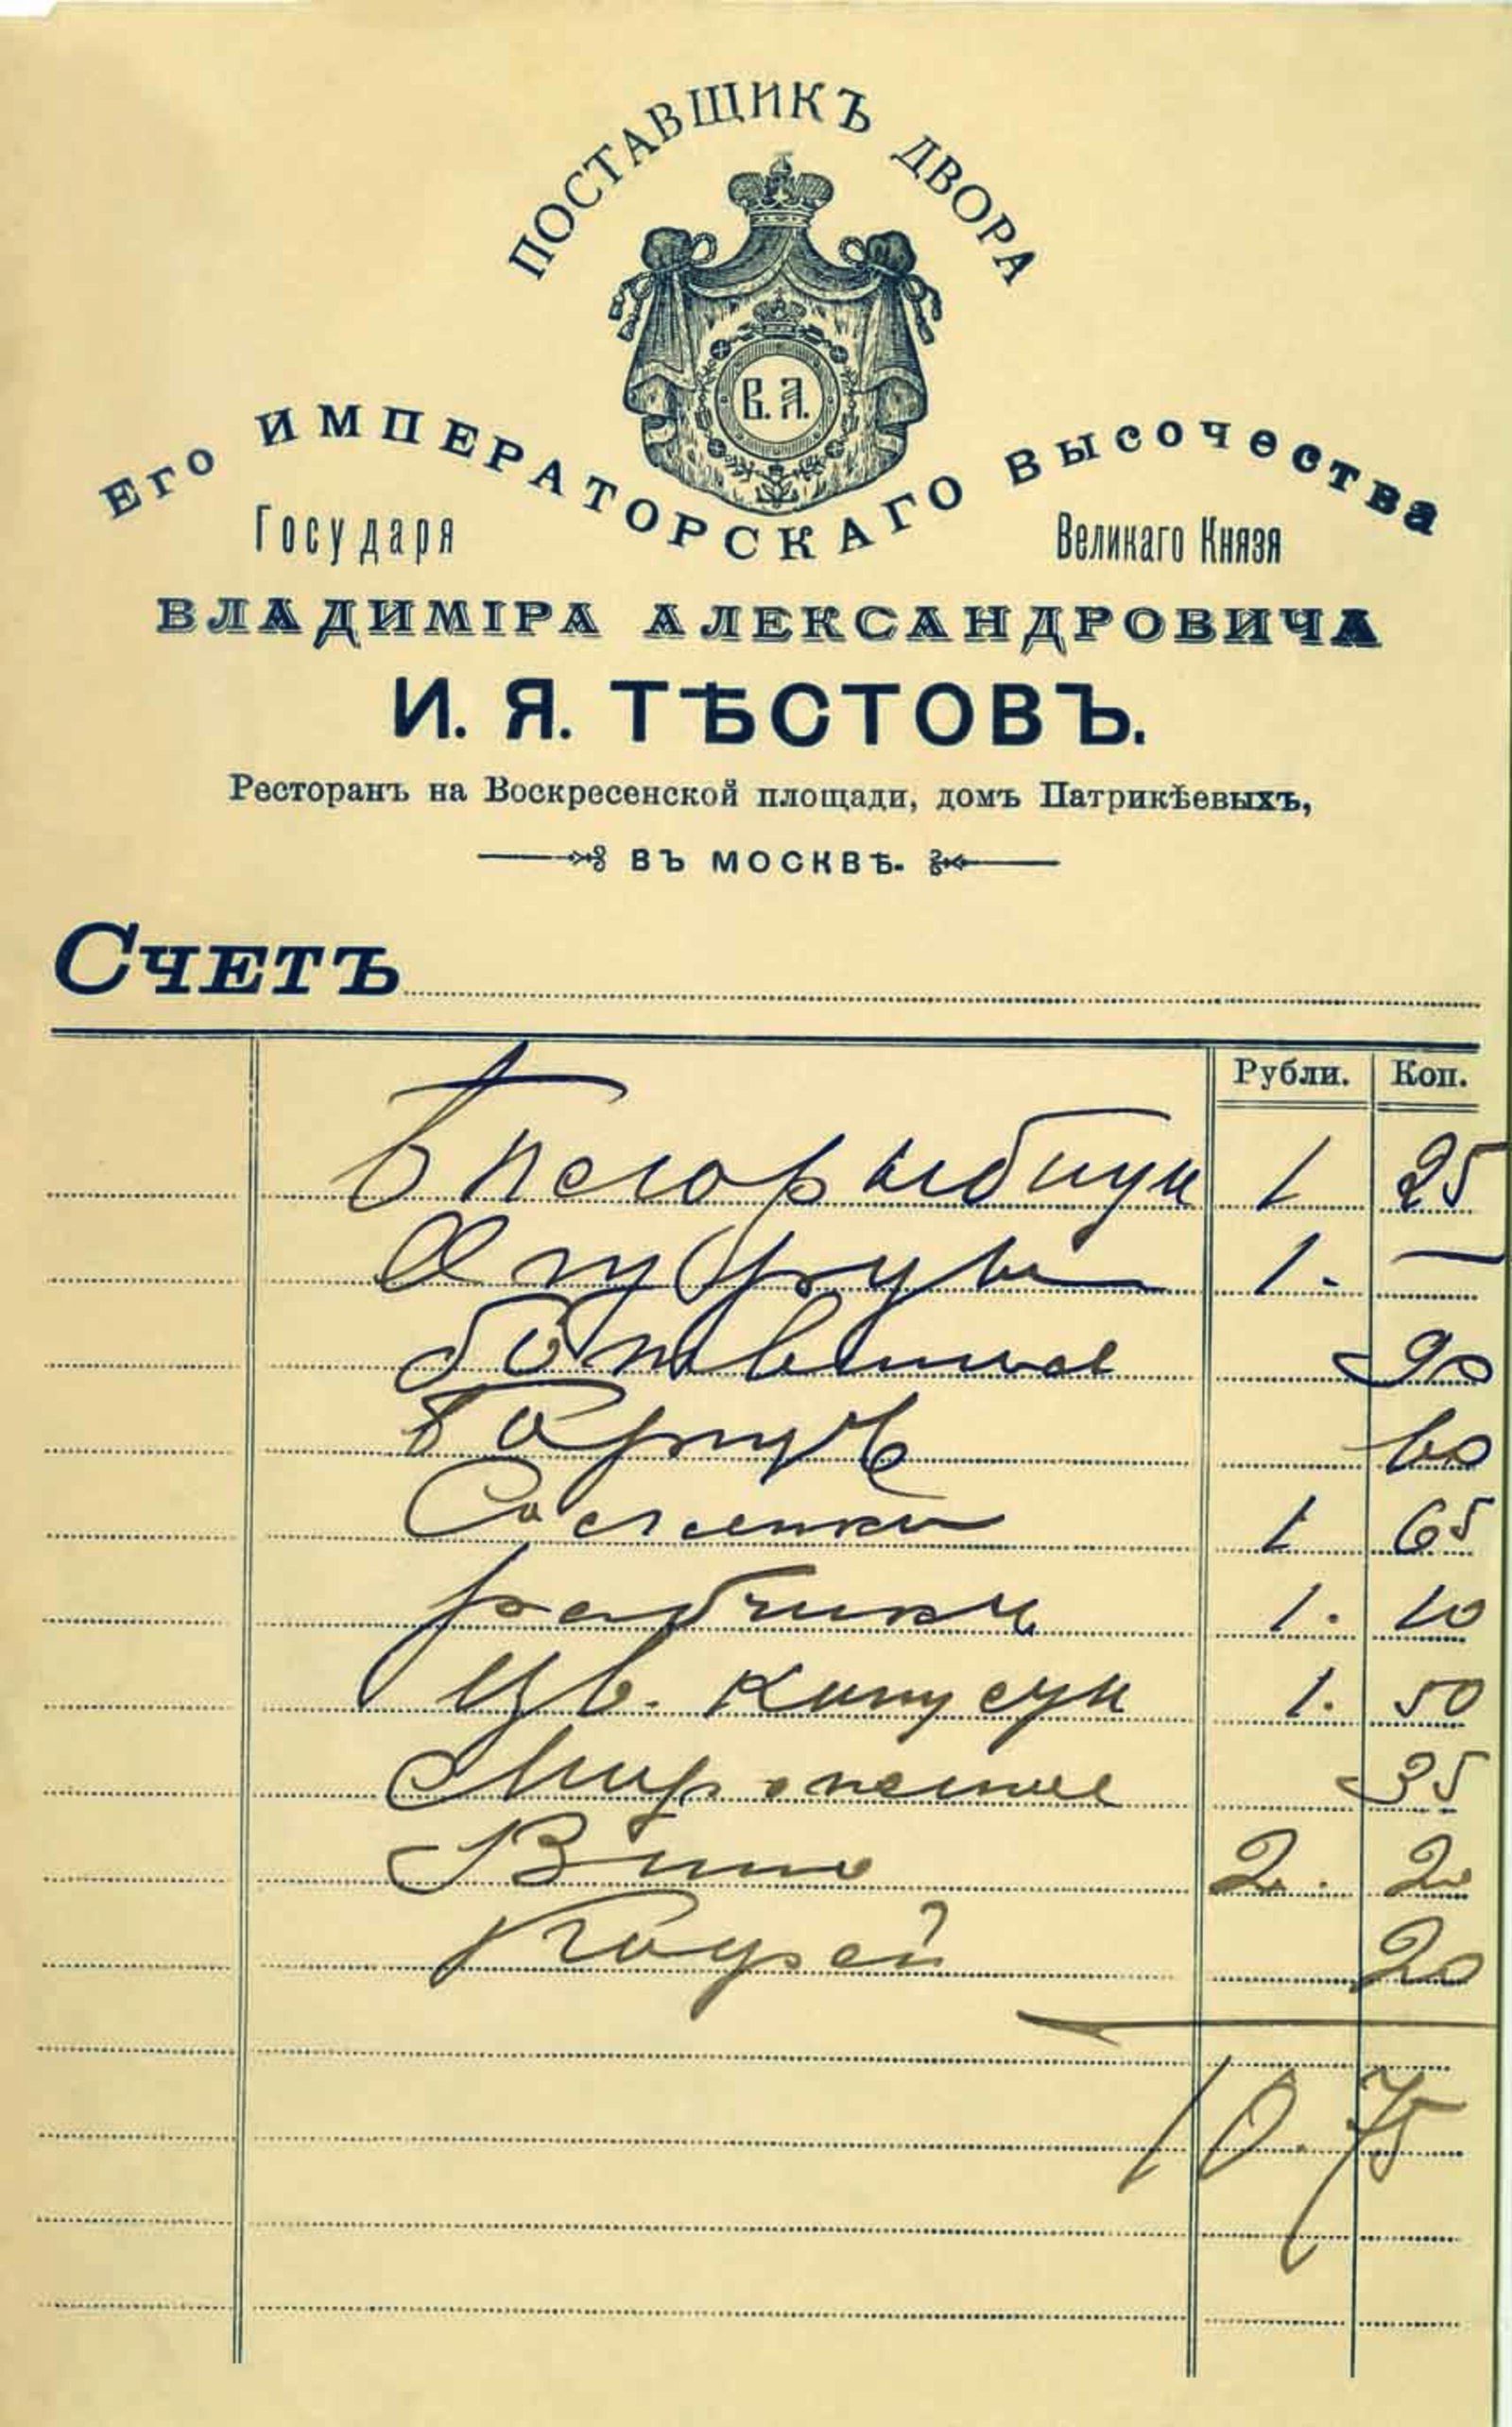 ПОСТАВЩИКЪ ДВОРА
В. А.
ЕГО ИМПЕРАТОРСКАГО ВЫСОЧЕСТВА
Государя Великаго Князя
ВЛАДИМІРА АЛЕКСАНДРОВИЧА
И. Я. ТѢСТОВЪ.
Ресторанъ на Воскресенской площади, домъ Патрикѣевыхъ,
ВЪ МОСКВѢ.
СЧЕТЪ
Рубли. Коп.
Белорыбицы 1 25
Огурцы 1. —
Ботвинье 90
60
1 65
рябчики 1. 10
Цв. капусты 1. 50
Мороженое 35
Вино 2. 20
Кофей 20
10.75